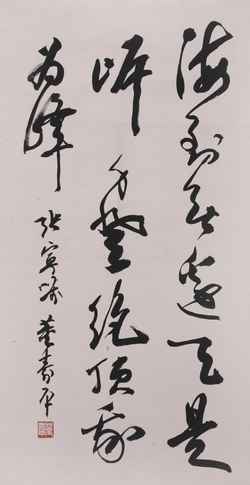 海到无边天是
岸山登绝顶我
为峰
董寿平